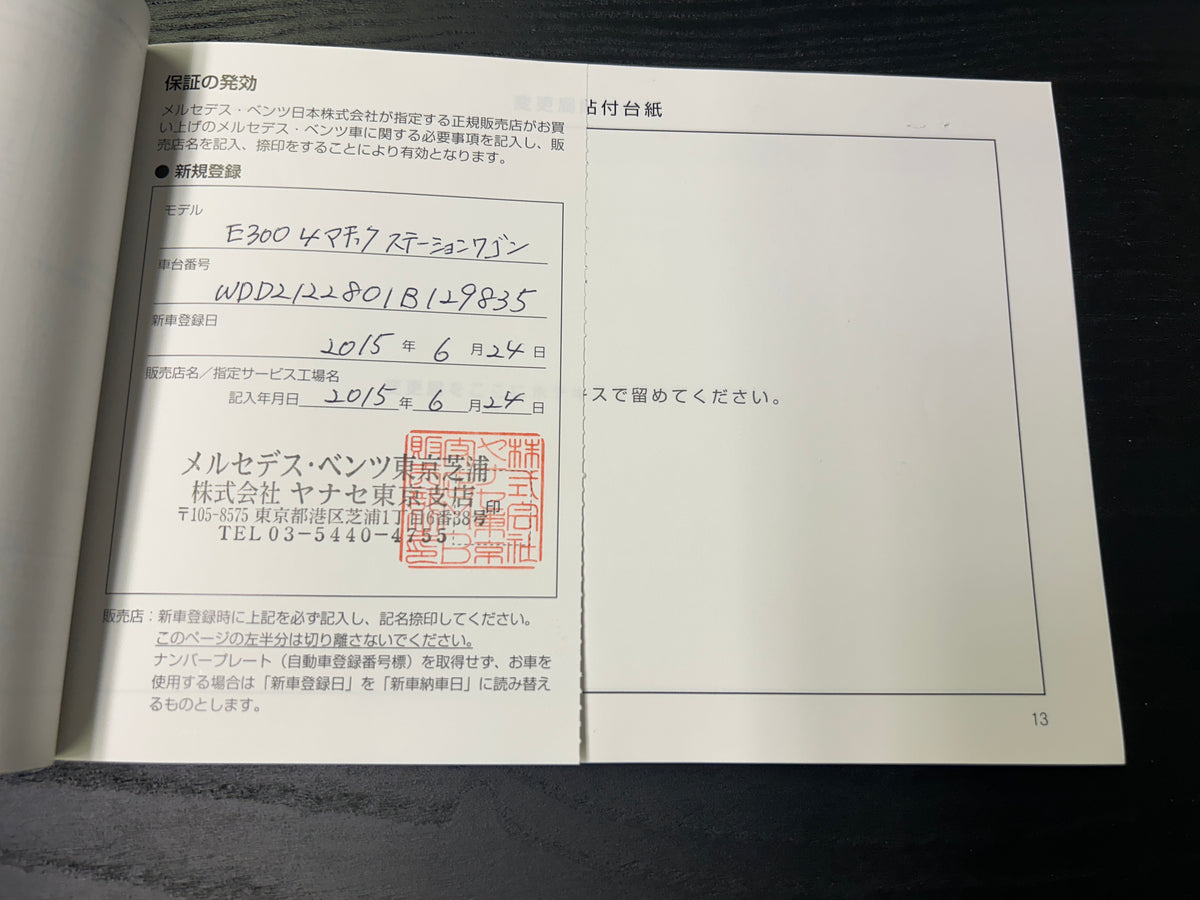 保証の発効
メルセデス・ベンツ日本株式会社が指定する正規販売店がお買
い上げのメルセデス・ベンツ車に関する必要事項を記入し、販
売店名を記入、捺印をすることにより有効となります。
● 新規登録
モデル
E300 4マチック ステーションワゴン
車台番号
WDD2122801B129835
新車登録日
2015 年 6 月 24 日
販売店名／指定サービス工場名
記入年月日 2015 年 6 月 24 日
メルセデス・ベンツ東京芝浦
株式会社 ヤナセ東京支店
〒105-8575 東京都港区芝浦1丁目6番38号
TEL 03-5440-4755
印
販売店：新車登録時に上記を必ず記入し、記名捺印してください。
このページの左半分は切り離さないでください。
ナンバープレート（自動車登録番号標）を取得せず、お車を
使用する場合は「新車登録日」を「新車納車日」に読み替え
るものとします。
貼付台紙
スで留めてください。
13